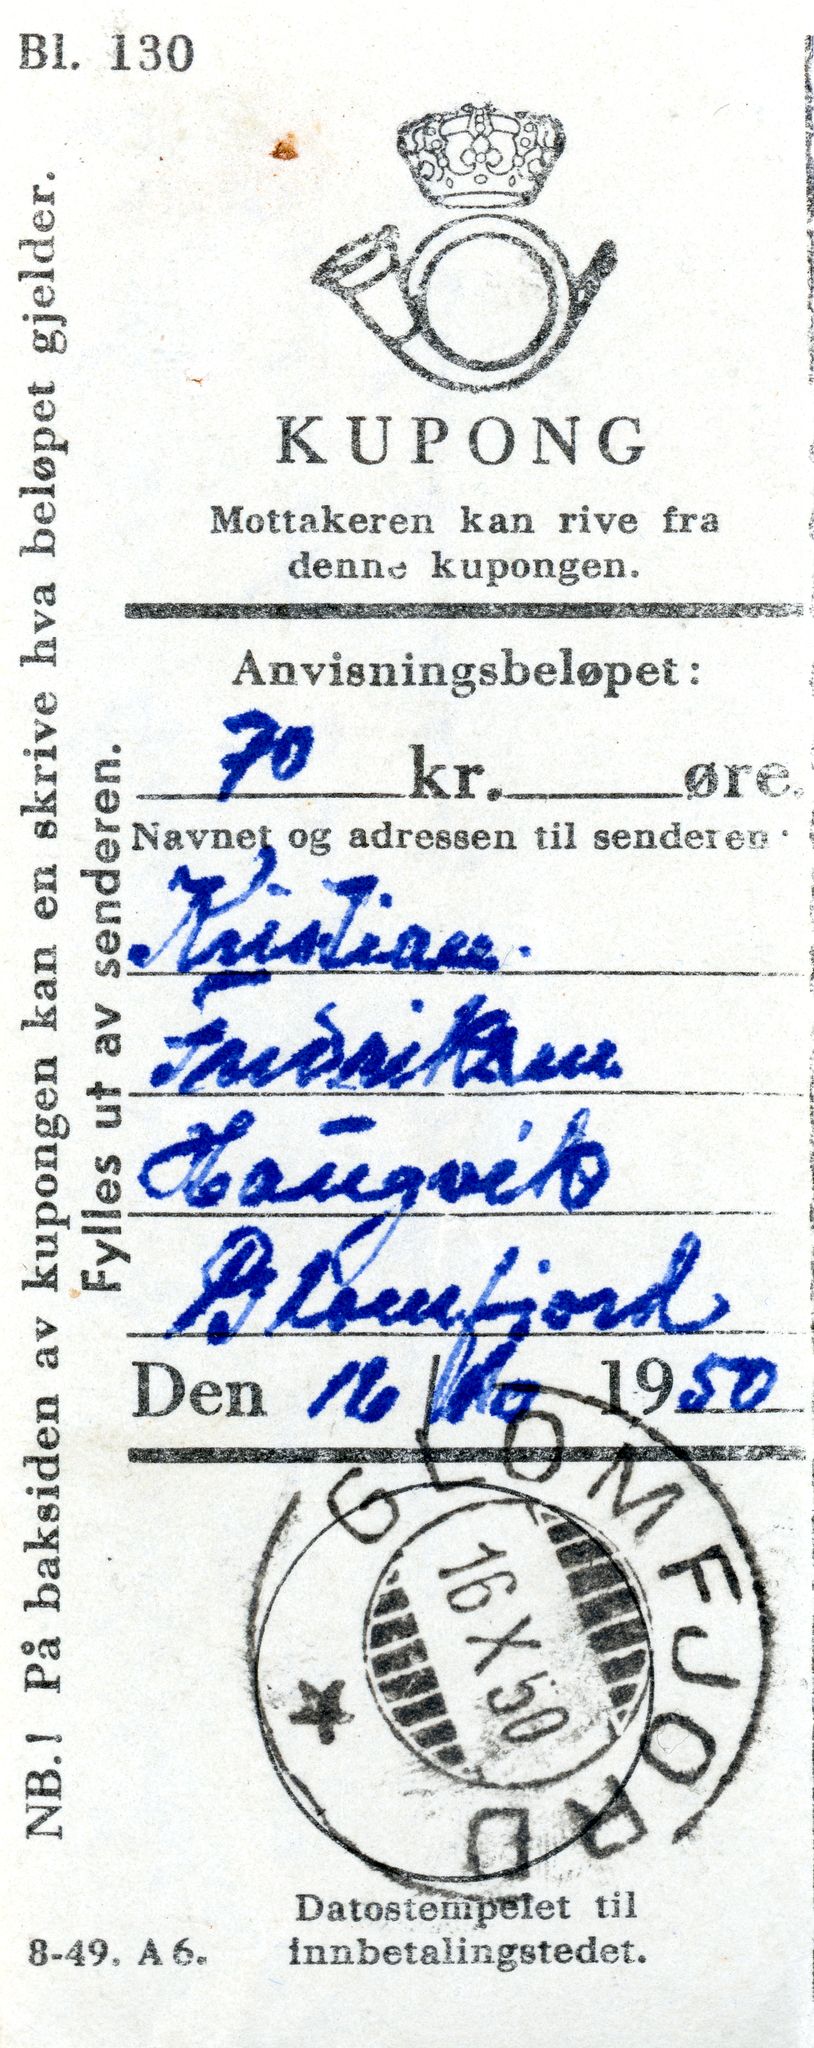 Bl. 130
KUPONG
Mottakeren kan rive fra
denne kupongen.
Anvisningsbeløpet:
70 kr. øre.
Navnet og adressen til senderen:
Kristian
Fredriksen
Haugvik
Glomfjord
Den 16/10 1950
GLOMFJORD
16 X 50
Datostempelet til
innbetalingstedet.
8-49. A 6.
NB.! På baksiden av kupongen kan en skrive hva beløpet gjelder.
Fylles ut av senderen.